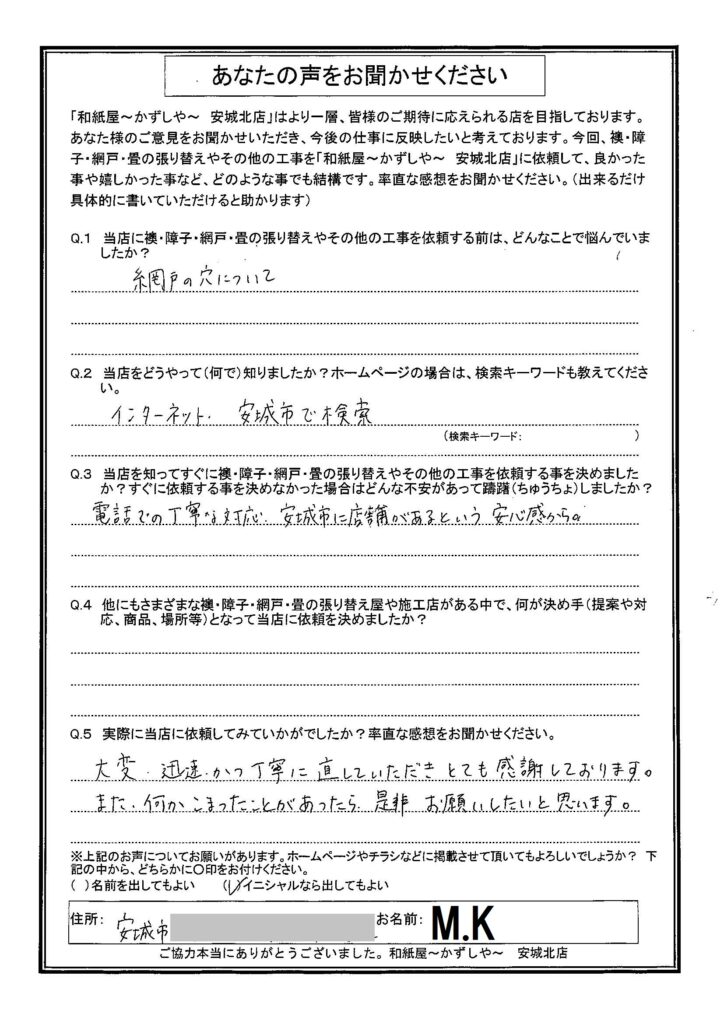 あなたの声をお聞かせください
「和紙屋～かずしや～　安城北店」はより一層、皆様のご期待に応えられる店を目指しております。
あなた様のご意見をお聞かせいただき、今後の仕事に反映したいと考えております。今回、襖・障
子・網戸・畳の張り替えやその他の工事を「和紙屋～かずしや～　安城北店」に依頼して、良かった
事や嬉しかった事など、どのような事でも結構です。率直な感想をお聞かせください。（出来るだけ
具体的に書いていただけると助かります）
Q.1　当店に襖・障子・網戸・畳の張り替えやその他の工事を依頼する前は、どんなことで悩んでいま
したか？
網戸の穴について
Q.2　当店をどうやって（何で）知りましたか？ホームページの場合は、検索キーワードも教えてくださ
い。
インターネット.　安城市で検索
（検索キーワード：　）
Q.3　当店を知ってすぐに襖・障子・網戸・畳の張り替えやその他の工事を依頼する事を決めました
か？すぐに依頼する事を決めなかった場合はどんな不安があって躊躇（ちゅうちょ）しましたか？
電話での丁寧な対応、安城市に店舗があるという安心感から。
Q.4　他にもさまざまな襖・障子・網戸・畳の張り替え屋や施工店がある中で、何が決め手（提案や対
応、商品、場所等）となって当店に依頼を決めましたか？
Q.5　実際に当店に依頼してみていかがでしたか？率直な感想をお聞かせください。
大変、迅速かつ丁寧に直していただきとても感謝しております。
また、何かこまったことがあったら是非お願いしたいと思います。
※上記のお声についてお願いがあります。ホームページやチラシなどに掲載させて頂いてもよろしいでしょうか？　下
記の中から、どちらかに〇印をお付けください。
（　）名前を出してもよい　（✓）イニシャルなら出してもよい
住所：　安城市　お名前：　M.K
ご協力本当にありがとうございました。和紙屋～かずしや～　安城北店